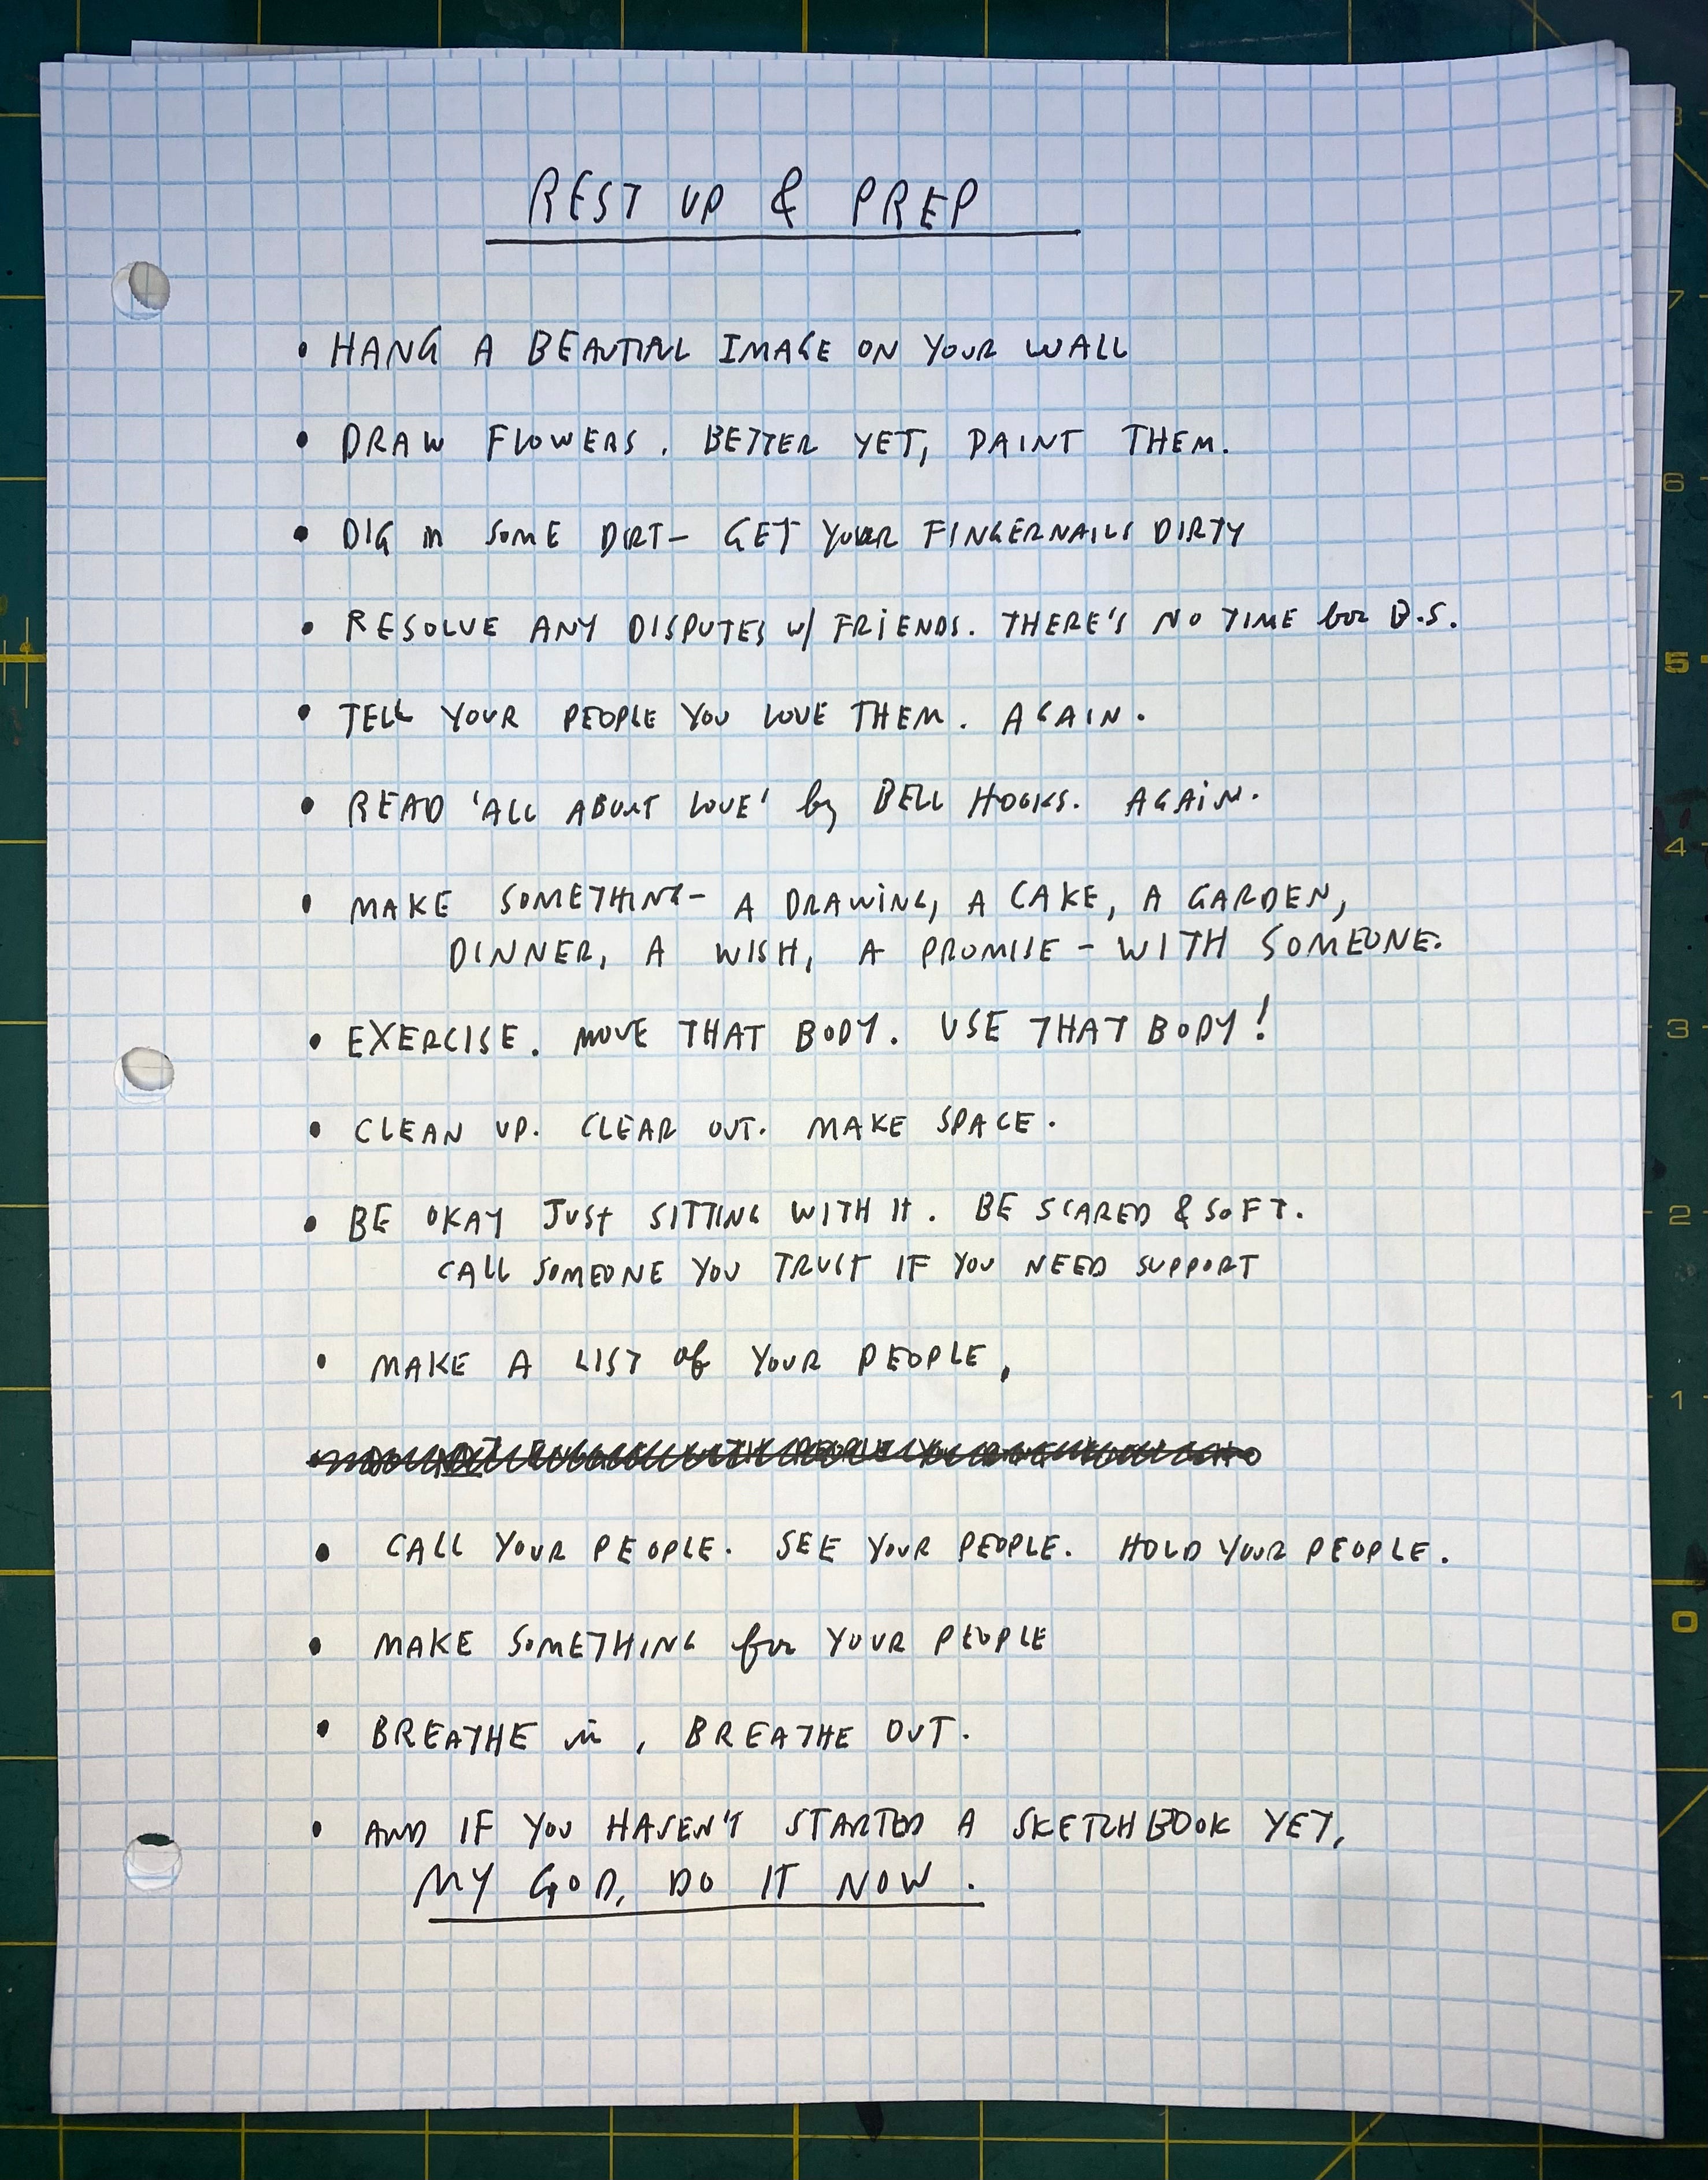 REST UP & PREP
• HANG A BEAUTIFUL IMAGE ON YOUR WALL
• DRAW FLOWERS. BETTER YET, PAINT THEM.
• DIG in SOME DIRT— GET YOUR FINGERNAILS DIRTY
• RESOLVE ANY DISPUTES w/ FRIENDS. THERE'S NO TIME for B.S.
• TELL YOUR PEOPLE YOU LOVE THEM. AGAIN.
• READ 'ALL ABOUT LOVE' by BELL HOOKS. AGAIN.
• MAKE SOMETHING— A DRAWING, A CAKE, A GARDEN,
DINNER, A WISH, A PROMISE — WITH SOMEONE.
• EXERCISE. MOVE THAT BODY. USE THAT BODY!
• CLEAN UP. CLEAR OUT. MAKE SPACE.
• BE OKAY JUST SITTING WITH IT. BE SCARED & SOFT.
CALL SOMEONE YOU TRUST IF YOU NEED SUPPORT
• MAKE A LIST of YOUR PEOPLE,
• CALL YOUR PEOPLE. SEE YOUR PEOPLE. HOLD YOUR PEOPLE.
• MAKE SOMETHING for YOUR PEOPLE
• BREATHE in, BREATHE OUT.
• AND IF YOU HAVEN'T STARTED A SKETCHBOOK YET,
MY GOD, DO IT NOW.
8
7
6
5
4
3
2
1
0